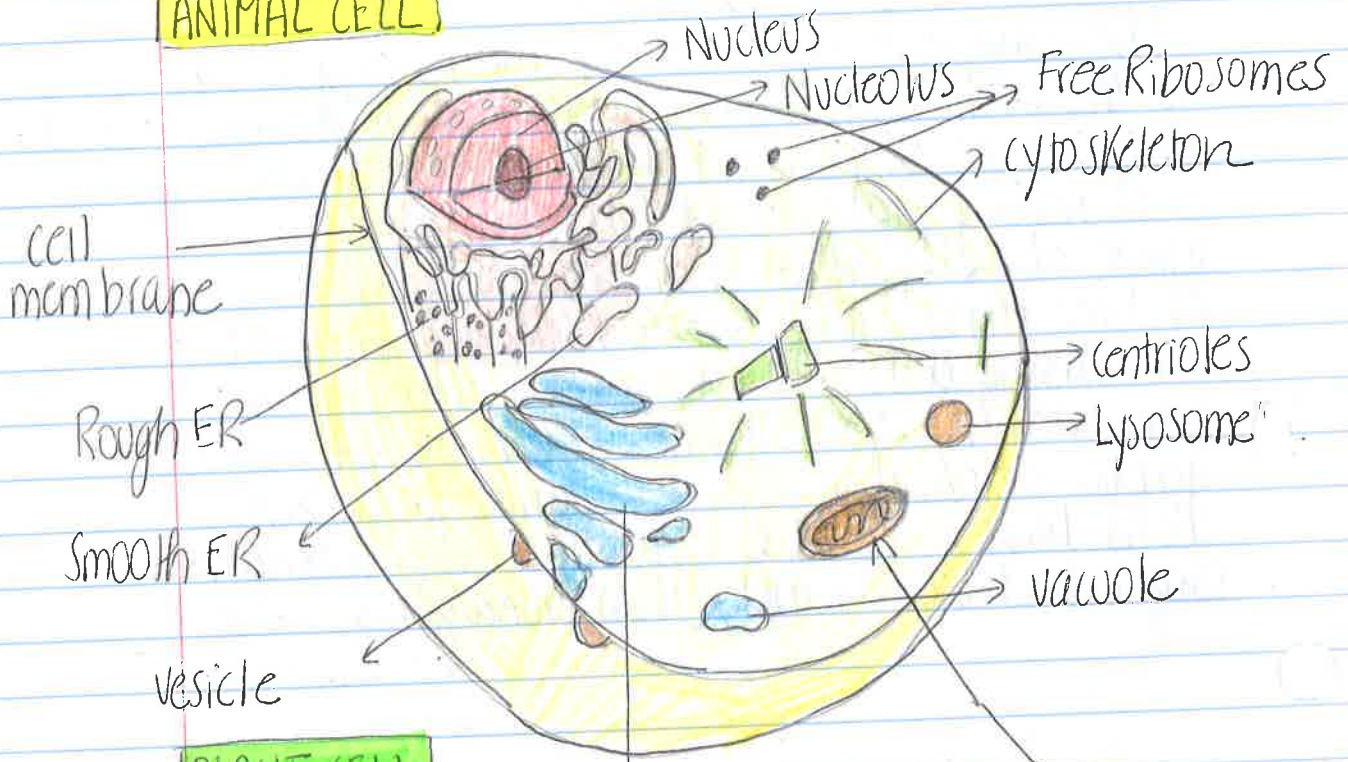 ANIMAL CELL
Nucleus
Nucleolus
Free Ribosomes
cytoskeleton
cell
membrane
centrioles
Rough ER
Lysosome
Smooth ER
vacuole
vesicle
PLANT CELL